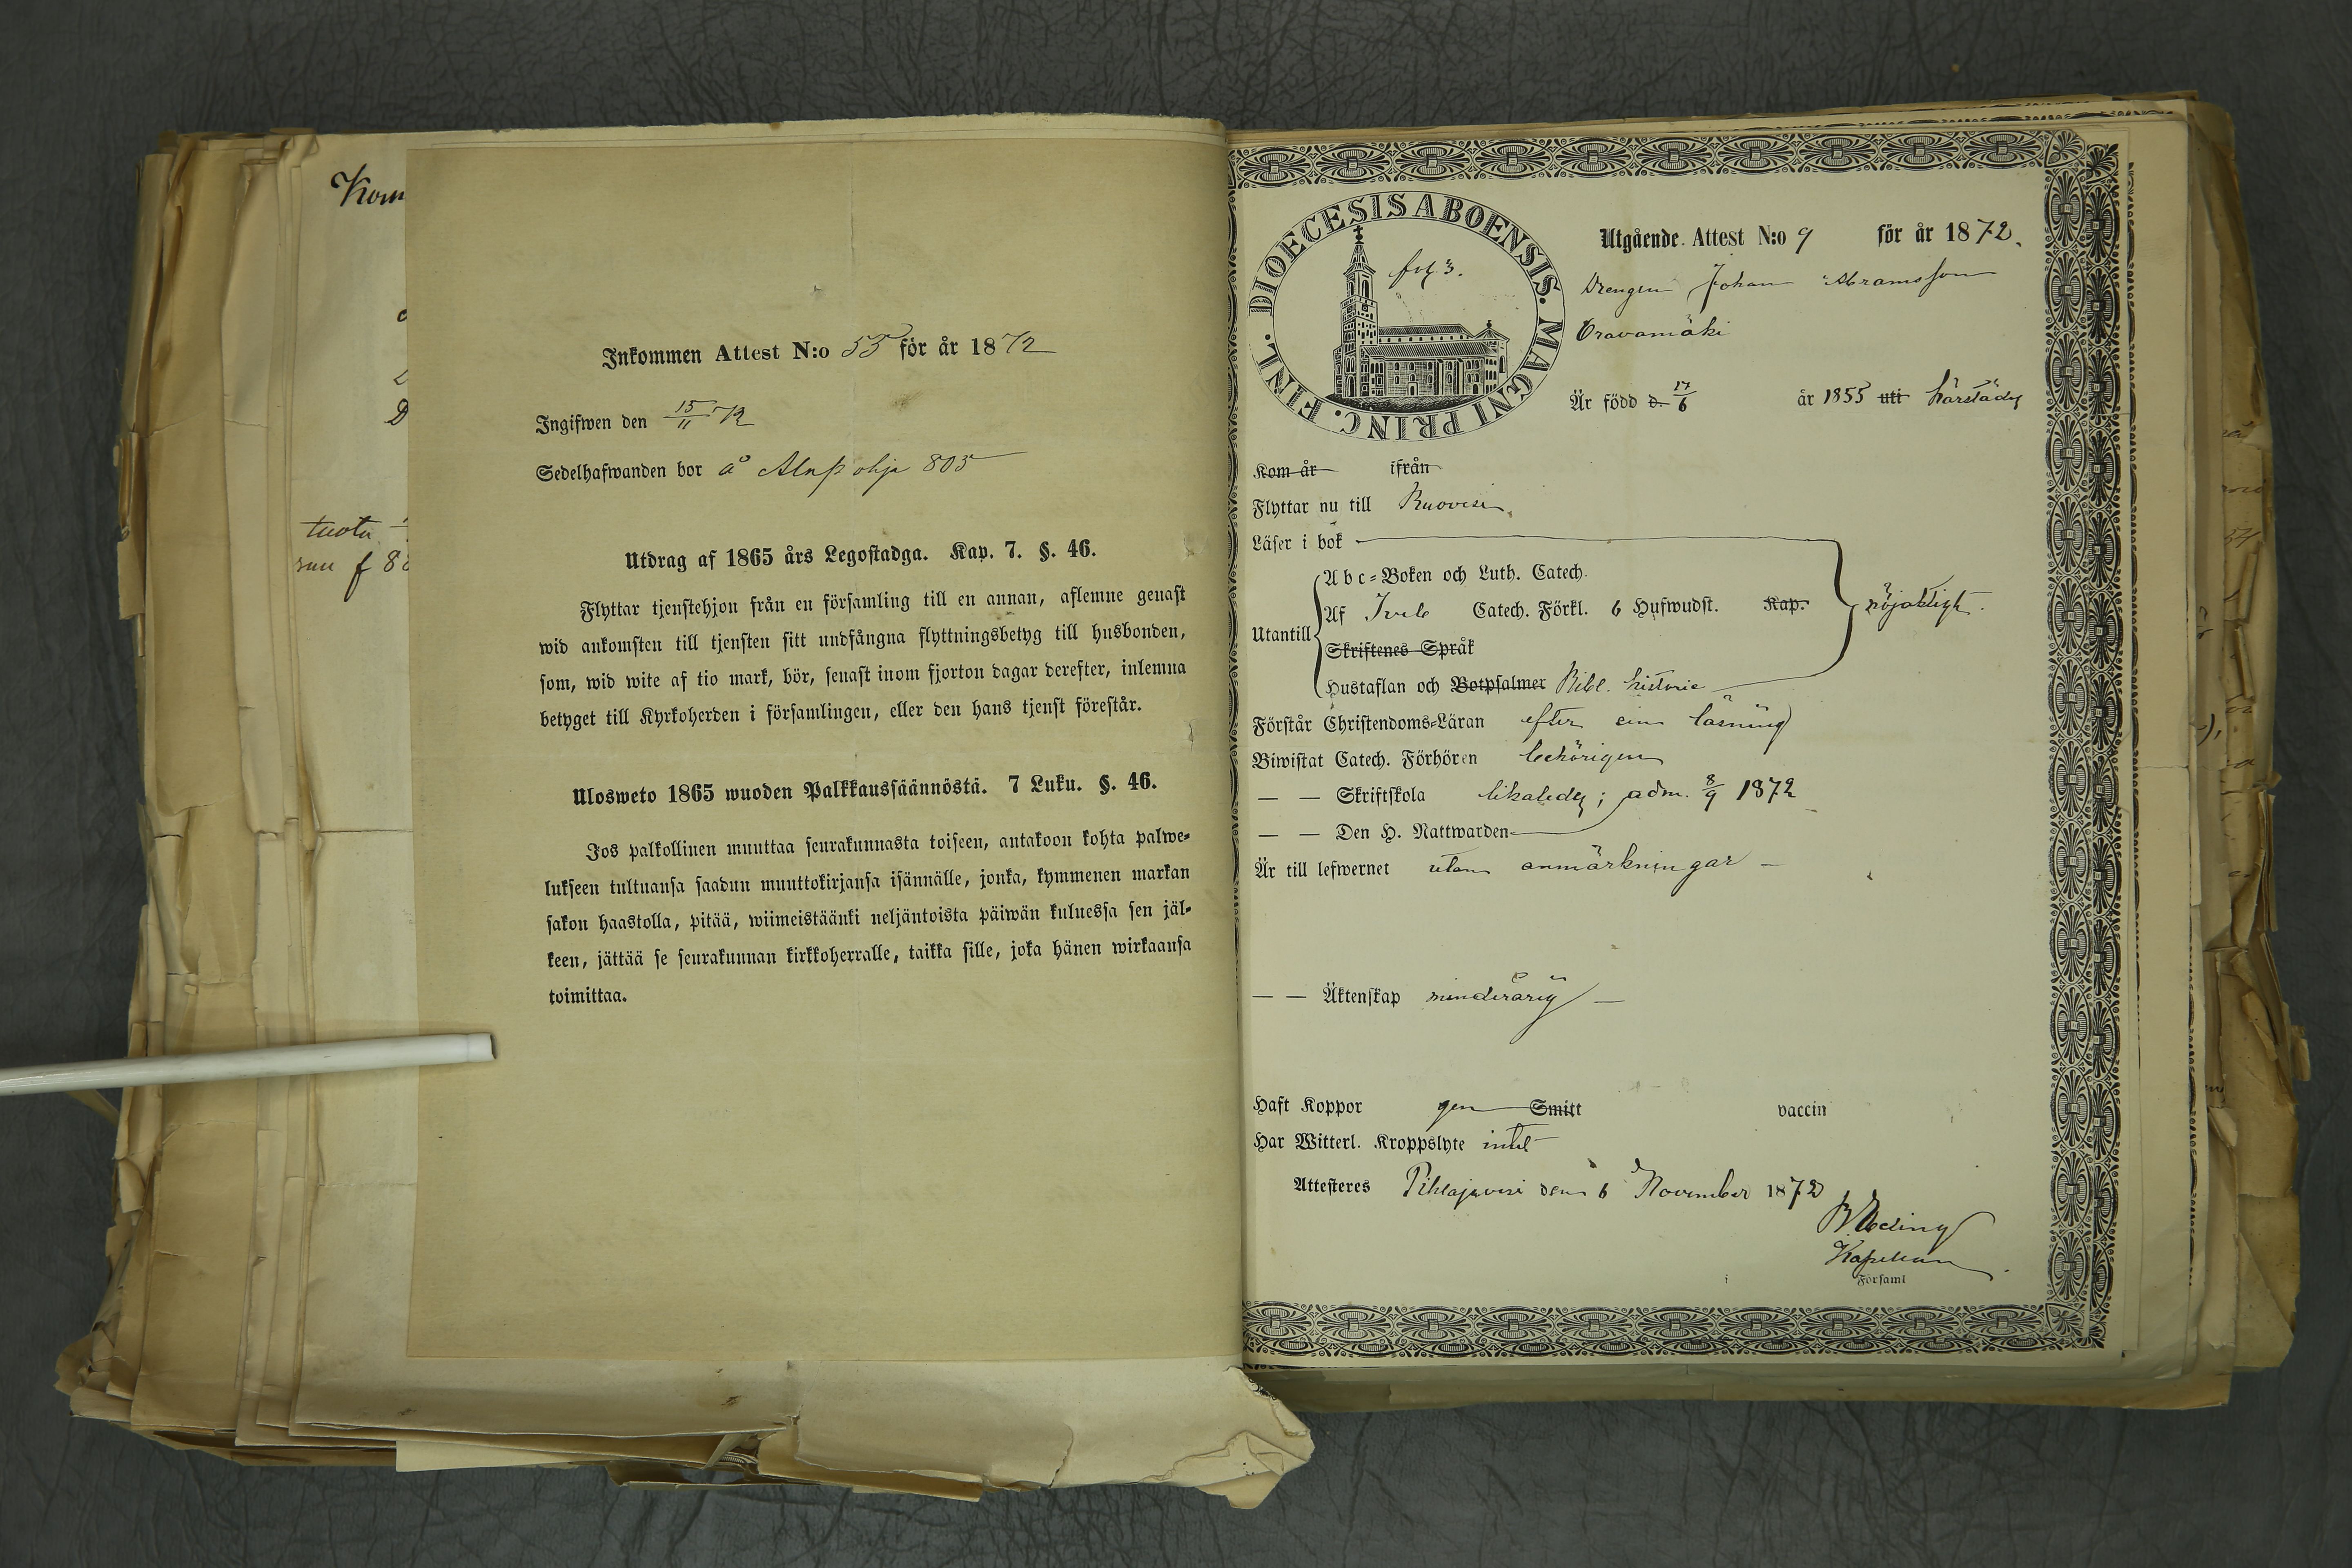 Kom
tuota
f 80
Inkommen Attest N:o 55 för år 1872
Ingifwen den 15/11 72
Sedelhafwanden bor å Alapohja 805
Utdrag af 1865 års Legostadga. Kap. 7. §. 46.
Flyttar tjenstehjon från en församling till en annan, aflemne genast
wid ankomsten till tjensten sitt undfångna flyttningsbetyg till husbonden,
som, wid wite af tio mark, bör, senast inom fjorton dagar derefter, inlemna
betyget till Kyrkoherden i församlingen, eller den hans tjenst förestår.
Ulosweto 1865 wuoden Palkkaussäännöstä. 7 Luku. §. 46.
Jos palkollinen muuttaa seurakunnasta toiseen, antakoon kohta palwe-
lukseen tultuansa saadun muuttokirjansa isännälle, jonka, kymmenen markan
sakon haastolla, pitää, wiimeistäänki neljäntoista päiwän kuluessa sen jäl-
keen, jättää se seurakunnan kirkkoherralle, taikka sille, joka hänen wirkaansa
toimittaa.
DIOECESIS ABOENSIS. MAGNI PRINC. FINL.
fol 3.
Utgående Attest N:o 9 för år 1872.
Drengen Johan Abramsson
Oravamäki
Är född d. 17/6 år 1855 uti härstädes
Kom år ifrån
Flyttar nu till Ruovesi
Läser i bok
Utantill
Abc-Boken och Luth. Catech.
Af Catech. Förkl. 6 Hufwudst. Kap. nöjaktigt.
Skriftenes Språk
Hustaflan och Botpsalmer Bibl. historie
Förstår Christendoms-Läran efter sin läsning
Biwistat Catech. Förhören behörigen
— — Skriftskola likaledes; adm. 8/9 1872
— — Den H. Nattwarden
Är till lefwernet utan anmärkningar —
— — Äktenskap minderårig —
Haft Koppor gen Smitt vaccin
Har Witterl. Kroppslyte intet
Attesteres Pihlajavesi den 6 November 1872
Kapellan
i Församl